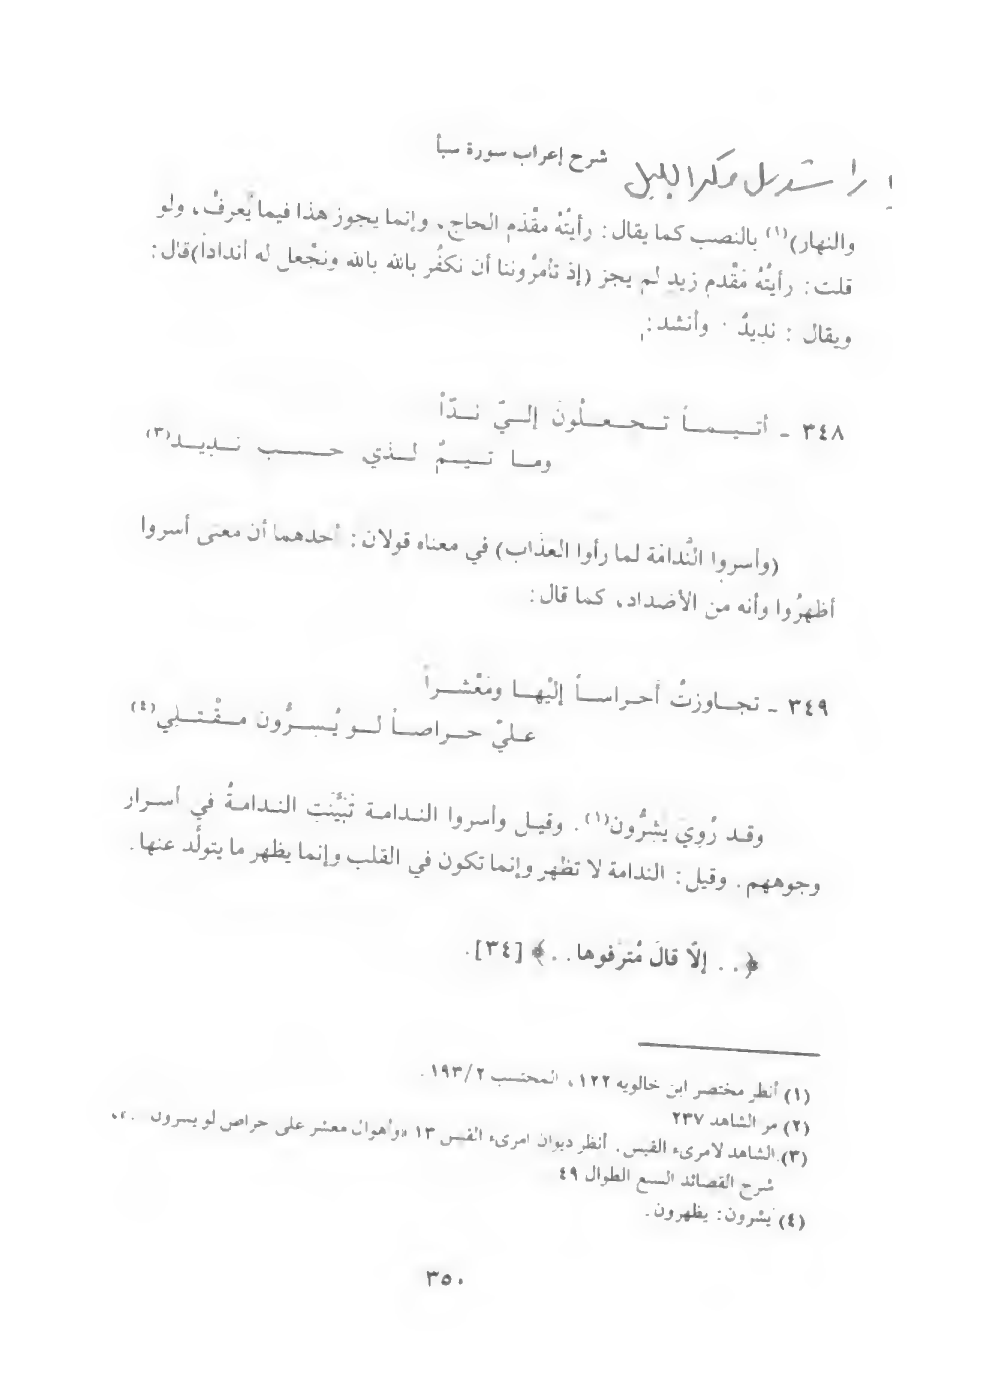 شرح إعراب سورة سبأ
مكر الليل
والنهار)(١) بالنصب كما يقال: رأيتُهُ مَقْدَم الحاج، وإنما يجوز هذا فيما يُعرفُ، ولو
قلت: رأيتُهُ مَقْدم زيد لم يجز (إذ تأمرُوننا أن نكفُر بالله بالله ونجْعل له أنداداً)قال:
ويقال : نديدٌ وأنشد:
٣٤٨ - أتـيـمـاً تـجـعـلُونَ إلـيّ نـدّاً
ومـا تـيـمٌ لـذي حـسـب نـديـد(٣)
(وأسروا النَّدامَة لما رأوا العذَاب) في معناه قولان: أحدهما أن معنى أسروا
أظهرُوا وأنه من الأضداد، كما قال:
٣٤٩ - تجـاوزتُ أحـراسـاً إليْهـا ومَعْشـراً
عـليّ حـراصـاً لـو يُـسِـرُّون مـقْـتـلِي(٤)
وقـد رُوِيَ يُشِرُّون(١). وقيـل وأسروا النـدامـة تَبَيَّنَت النـدامـةُ في أسـرار
وجوههم. وقيل: الندامة لا تظهر وإنما تكون في القلب وإنما يظهر ما يتولَّد عنها.
﴿. . إلّا قالَ مُترَفوها. .﴾ [٣٤].
(١) أنظر مختصر ابن خالويه ١٢٢، المحتسب ١٩٣/٢.
(٢) مر الشاهد ٢٣٧
(٣) الشاهد لامرىء القيس. أنظر ديوان امرىء القيس ١٣ «وأهوال معشر على حراص لو يسرون . .»،
شرح القصائد السبع الطوال ٤٩
(٤) يشرون: يظهرون.
٣٥٠